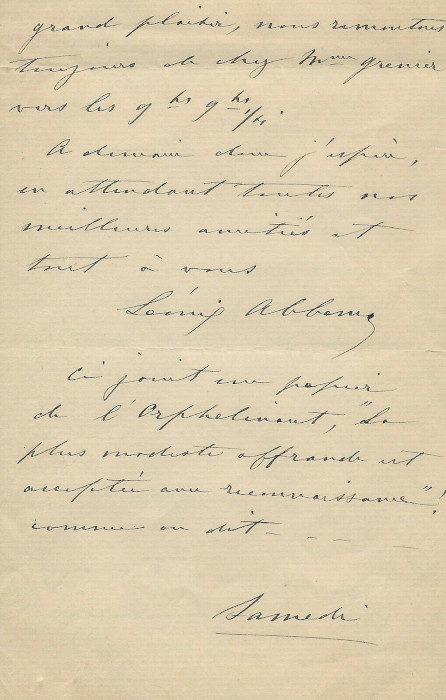 grand plaisir, nous remontons
toujours de chez Mme Grenier
vers les 9 hrs 9 hrs 1/4.
A demain donc j'espère,
en attendant toutes nos
meilleures amitiés et
tout à vous
Louise Abbema
Ci joint un papier
de l'Orphelinat, "La
plus modeste offrande est
acceptée avec reconnaissance"!
comme on dit - - - -
Samedi